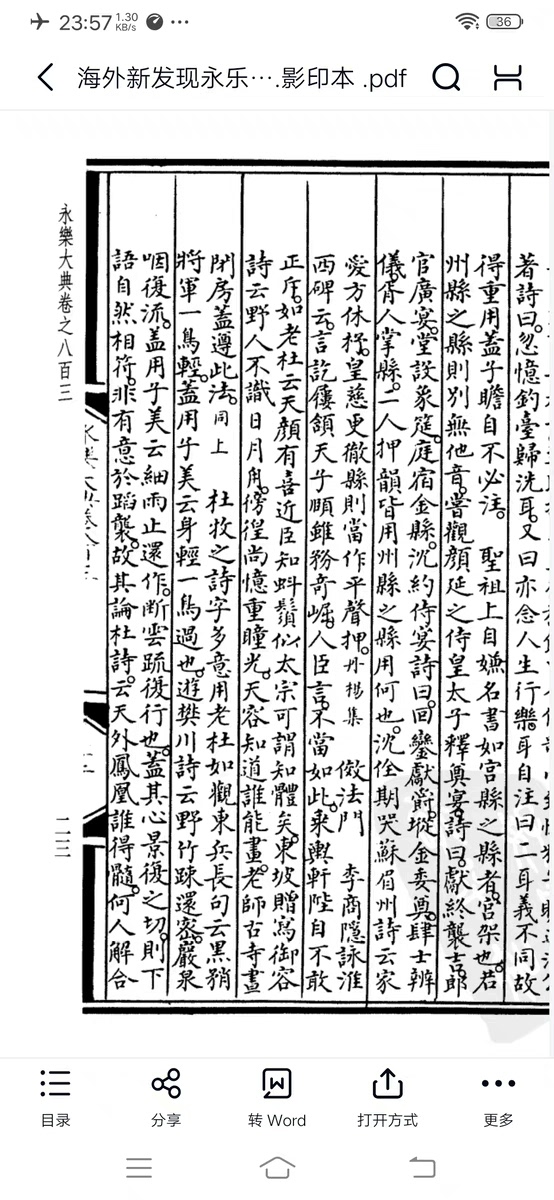 23:57 1.30 KB/s ... 36
海外新发现永乐….影印本 .pdf
著詩曰忽憶釣臺歸洗耳又曰亦念人生行樂耳自注曰二耳義不同故
得重用蓋子瞻自不必注 聖祖上自嫌名書如宮縣之縣者宮架也若
州縣之縣則別無他音嘗觀顏延之侍皇太子釋奠宴詩曰獻終襲吉郎
官廣宴堂設象筵庭宿金縣沈約侍宴詩曰回鑾獻爵摐金委奠肆士辨
儀胥人掌縣二人押韻皆用州縣之縣用何也沈佺期哭蘇眉州詩云家
愛方休杼皇慈更徹縣則當作平聲押丹楊集 倣法門 李商隱詠淮
西碑云言訖屢頷天子頤雖務奇崛人臣言不當如此乘輿軒陛自不敢
正斥如老杜云天顏有喜近臣知虯鬚似太宗可謂知體矣東坡贈寫御容
詩云野人不識日月角彷徨尚憶重瞳光天容知道誰能畫老師古寺晝
閉房蓋遵此法同上 杜牧之詩字多意用老杜如觀東兵長句云黑矟
將軍一鳥輕蓋用子美云身輕一鳥過也遊樊川詩云野竹踈還密巖泉
咽復流蓋用子美云細雨止還作斷雲疏復行也蓋其心景復之切則下
語自然相符非有意於蹈襲故其論杜詩云天外鳳凰誰得髓何人解合
永樂大典卷之八百三
二三
目录
分享
转 Word
打开方式
更多